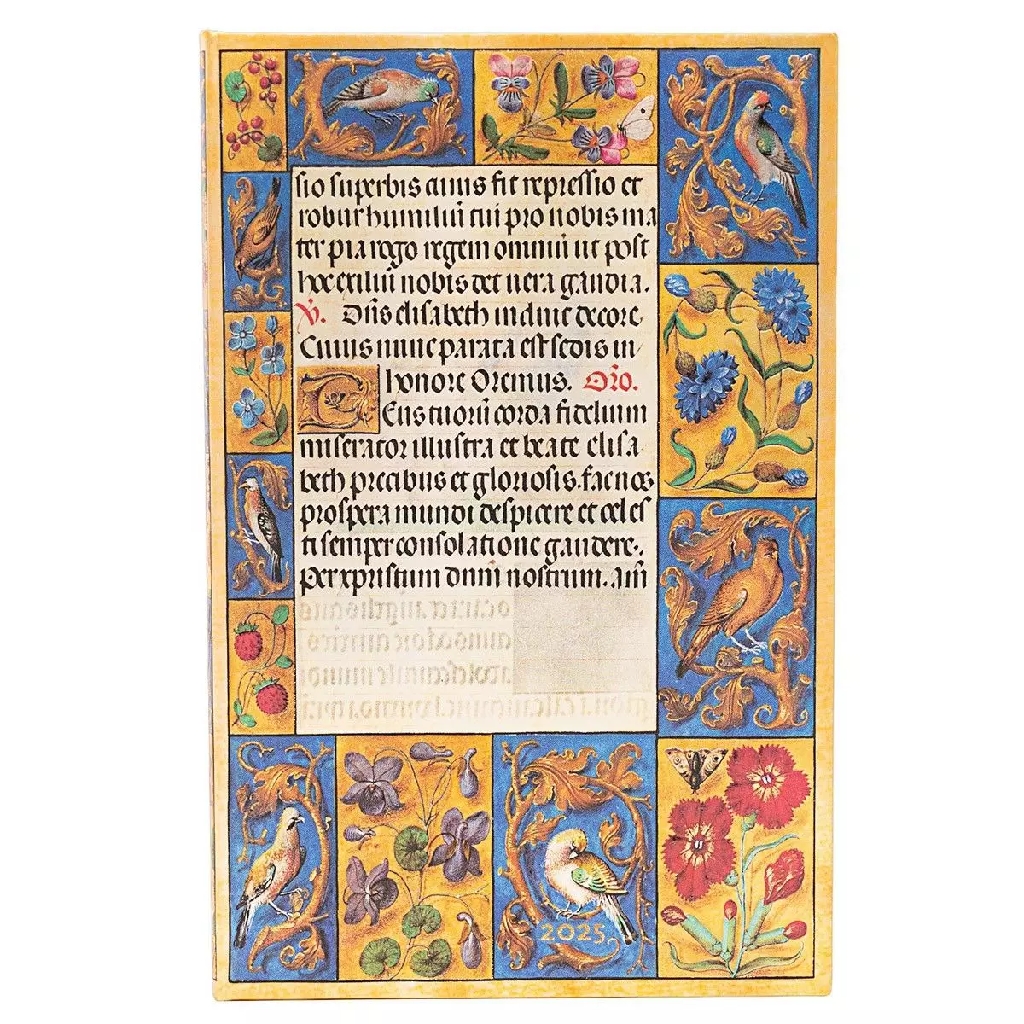 sio superbis cuius fit repressio et
robur humiliū tui pro nobis ma
ter pia rogo regem omniū ut post
hoc exiliū nobis det uera gaudia.
V. Dn̄s elisabeth induit decore
Cuius nunc parata est sedis in
honore Oremus. Oro.
Eus tuorū corda fidelium
miserator illustra et beate elisa
beth precibus et gloriosis. fac nos
prospera mundi despicere et celes
ti semper consolatione gaudere.
Per xpristum dnm̄ nostrum. Am̄
2025